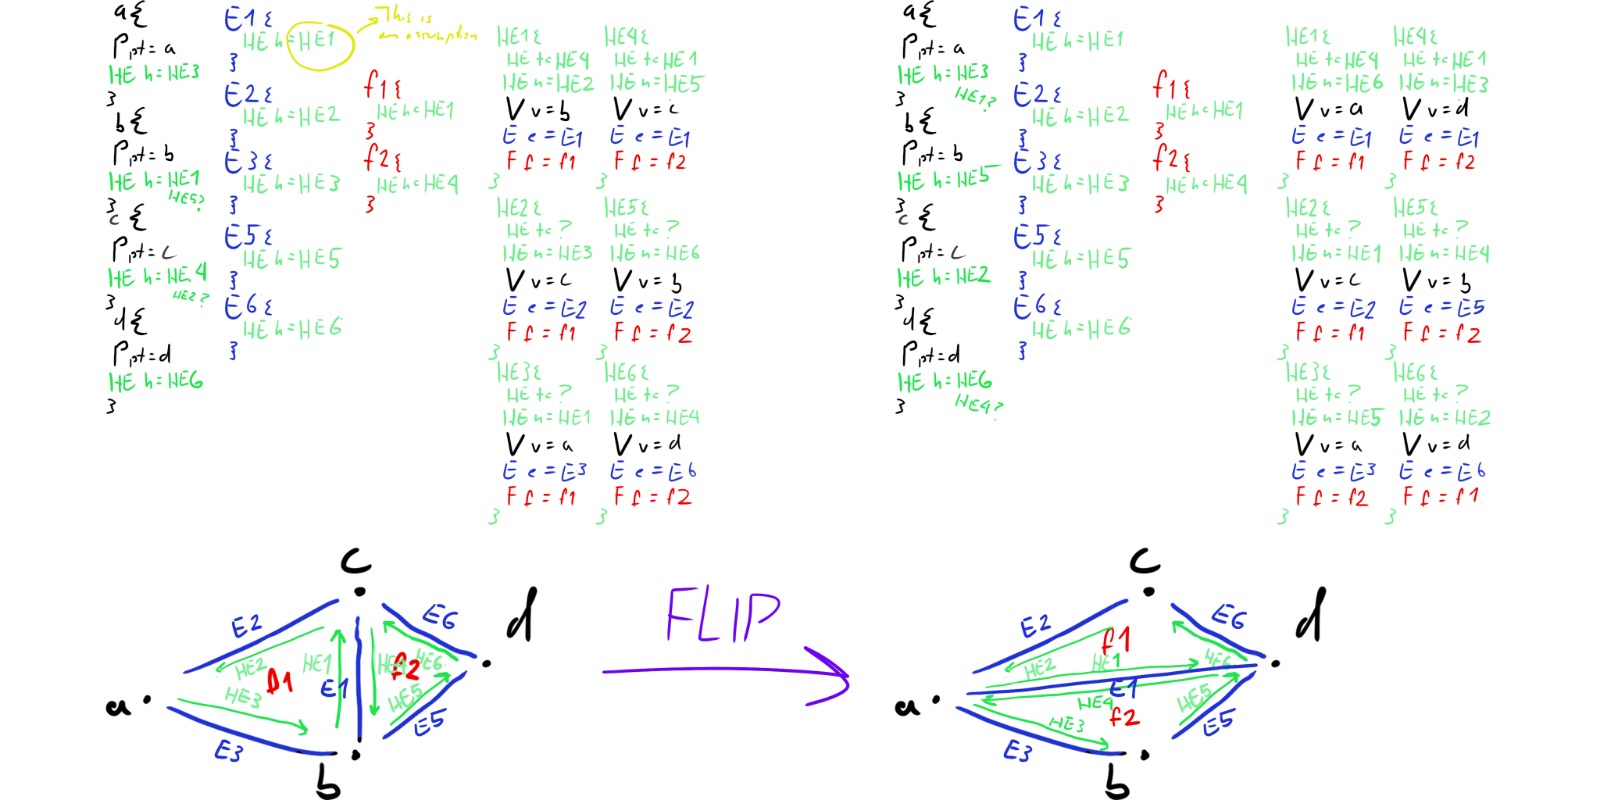 a{
Ppt = a
HE h = HE3
}
b{
Ppt = b
HE h = HE1
HE5?
}
c{
Ppt = c
HE h = HE4
HE2?
}
d{
Ppt = d
HE h = HE6
}
E1{
HE h = HE1
}
E2{
HE h = HE2
}
E3{
HE h = HE3
}
E5{
HE h = HE5
}
E6{
HE h = HE6
}
This is
an assumption
f1{
HE h = HE1
}
f2{
HE h = HE4
}
HE1{
HE t = HE4
HE n = HE2
V v = b
E e = E1
F f = f1
}
HE2{
HE t = ?
HE n = HE3
V v = c
E e = E2
F f = f1
}
HE3{
HE t = ?
HE n = HE1
V v = a
E e = E3
F f = f1
}
HE4{
HE t = HE1
HE n = HE5
V v = c
E e = E1
F f = f2
}
HE5{
HE t = ?
HE n = HE6
V v = b
E e = E2
F f = f2
}
HE6{
HE t = ?
HE n = HE4
V v = d
E e = E6
F f = f2
}
a{
Ppt = a
HE h = HE3
HE1?
}
b{
Ppt = b
HE h = HE5
}
c{
Ppt = c
HE h = HE2
}
d{
Ppt = d
HE h = HE6
HE4?
}
E1{
HE h = HE1
}
E2{
HE h = HE2
}
E3{
HE h = HE3
}
E5{
HE h = HE5
}
E6{
HE h = HE6
}
f1{
HE h = HE1
}
f2{
HE h = HE4
}
HE1{
HE t = HE4
HE n = HE6
V v = a
E e = E1
F f = f1
}
HE2{
HE t = ?
HE n = HE1
V v = c
E e = E2
F f = f1
}
HE3{
HE t = ?
HE n = HE5
V v = a
E e = E3
F f = f2
}
HE4{
HE t = HE1
HE n = HE3
V v = d
E e = E1
F f = f2
}
HE5{
HE t = ?
HE n = HE4
V v = b
E e = E5
F f = f2
}
HE6{
HE t = ?
HE n = HE2
V v = d
E e = E6
F f = f1
}
c
E2
E6
d
HE2
HE1
HE4
HE6
f2
f1
E1
HE3
HE5
a
E5
E3
b
FLIP
c
E2
E6
d
f1
HE2
HE1
HE6
E1
HE4
HE5
a
f2
HE3
E5
E3
b